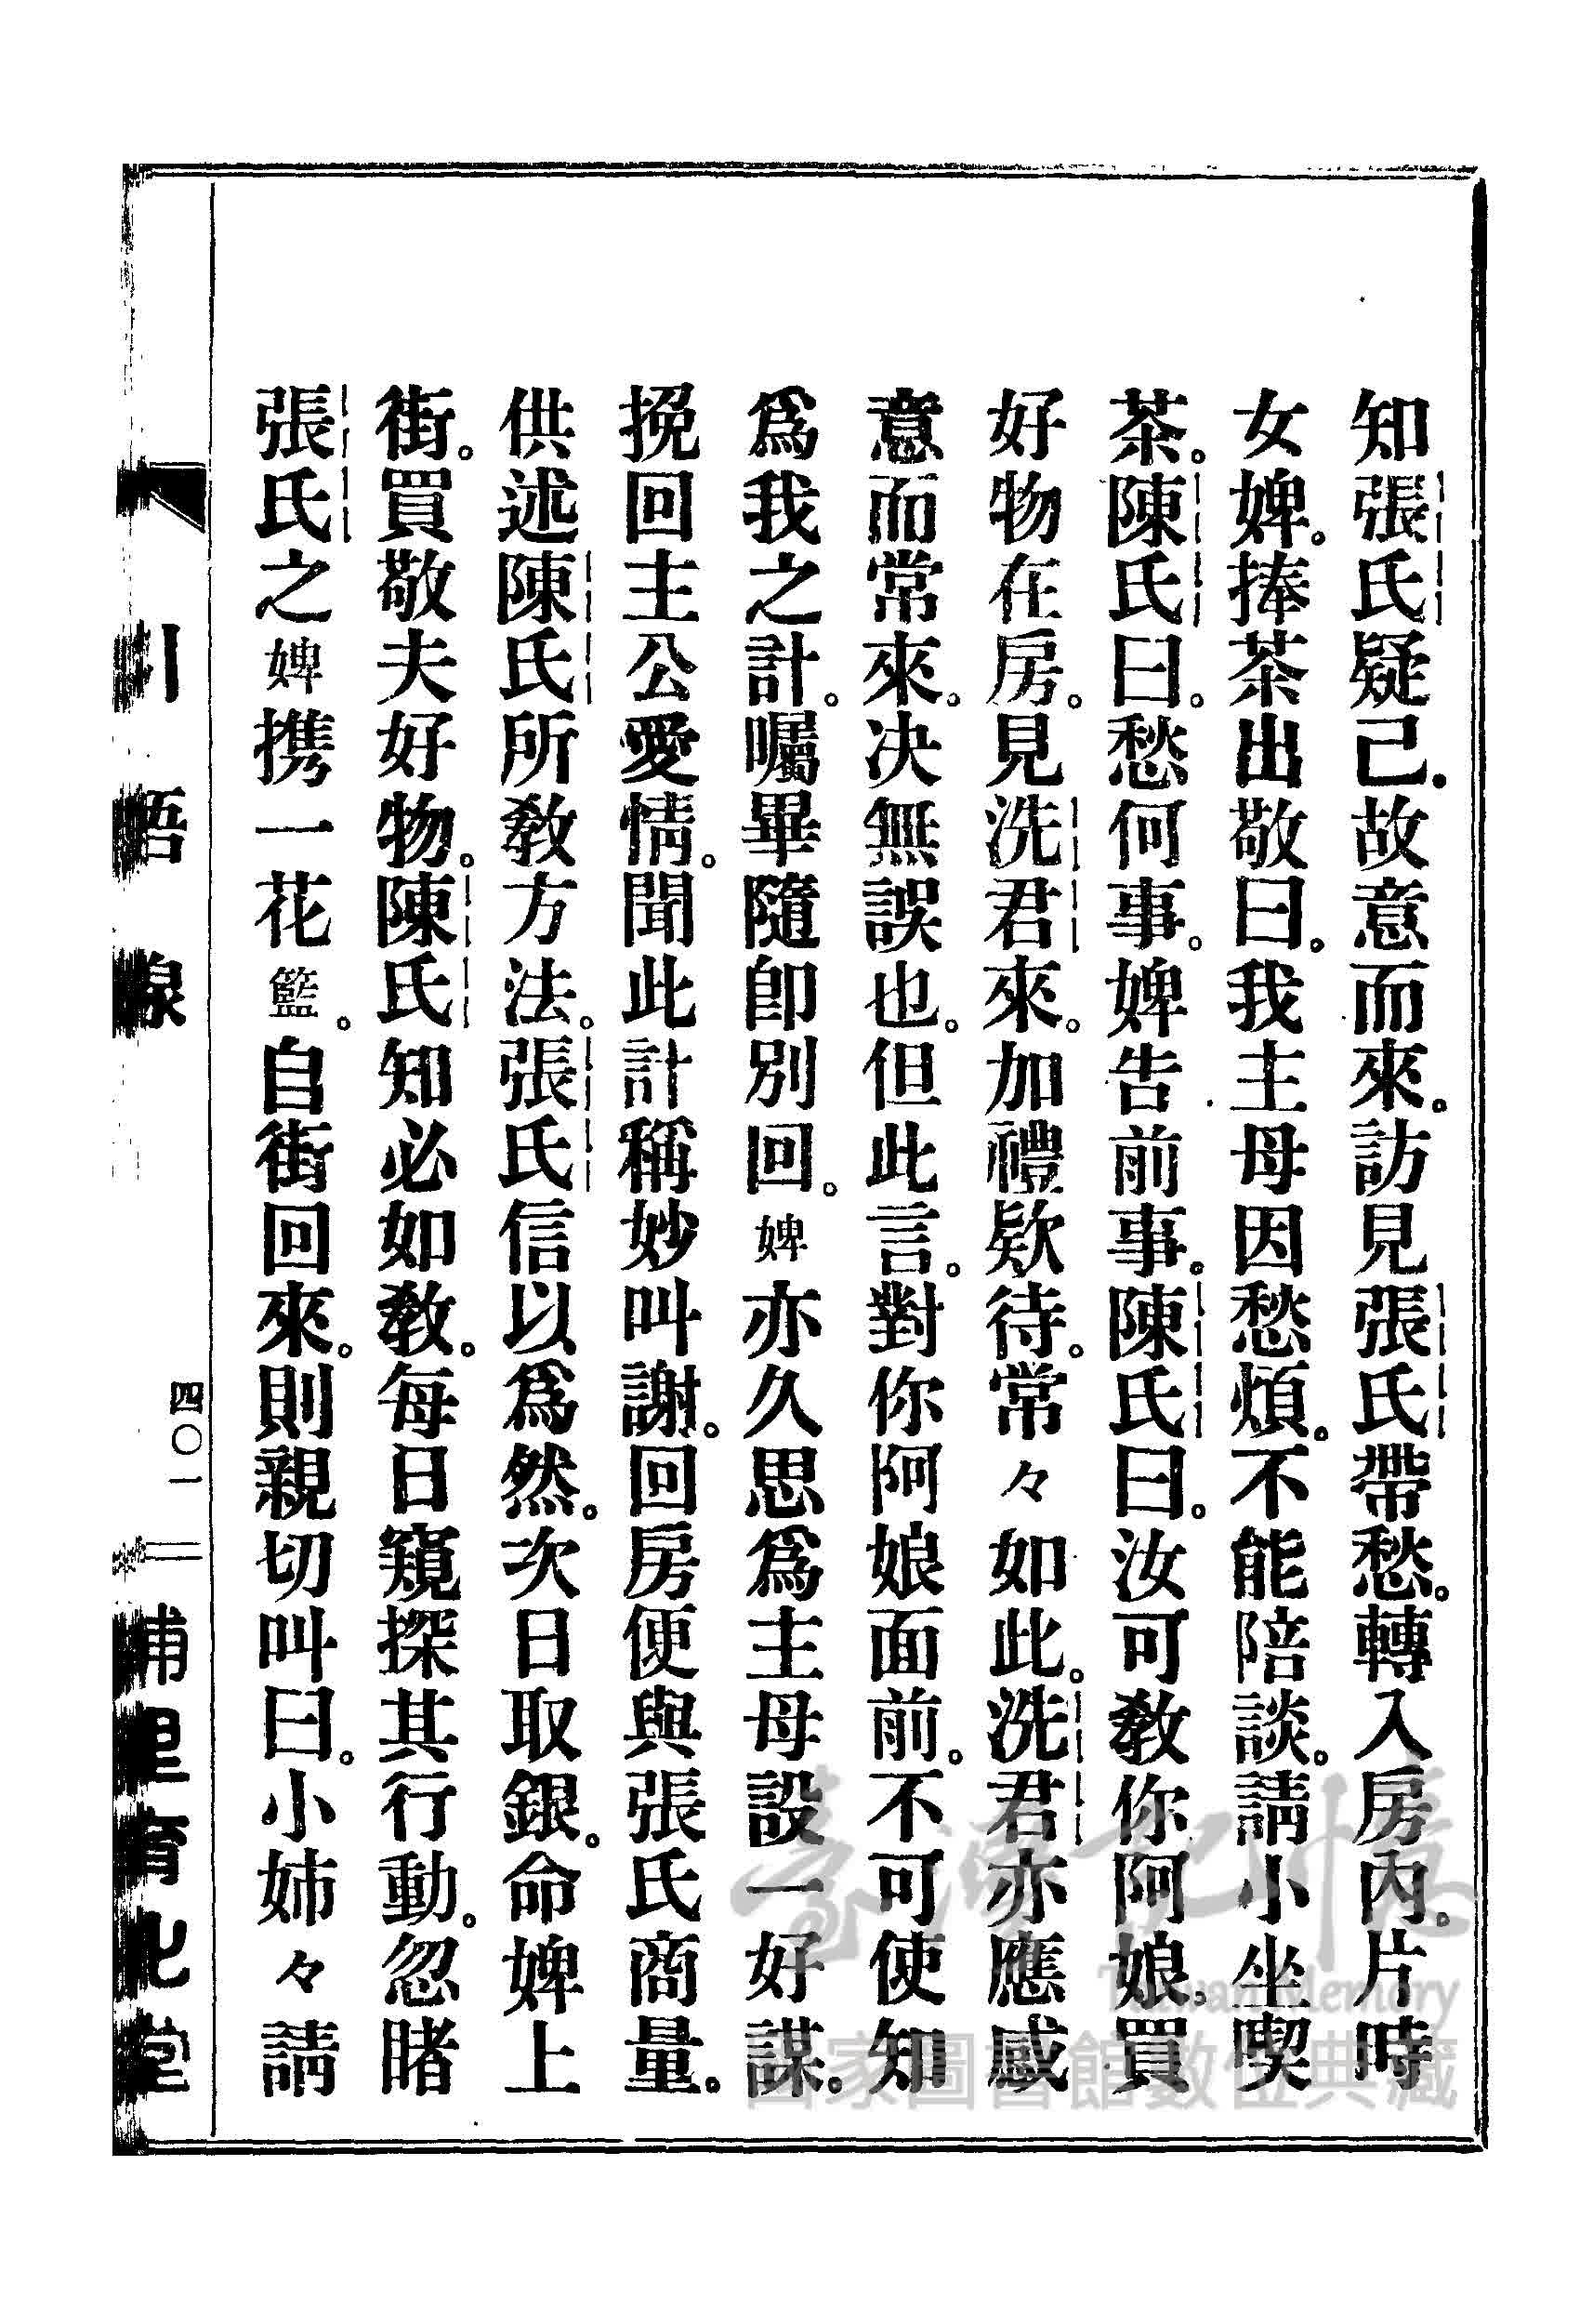 知張氏疑己。故意而來。訪見張氏帶愁。轉入房內。片時
女婢。捧茶出敬曰。我主母因愁煩。不能陪談。請小坐喫
茶。陳氏曰。愁何事。婢告前事。陳氏曰。汝可教你阿娘。買
好物在房。見洗君來。加禮欵待。常々如此。洗君亦應感
意而常來。决無誤也。但此言。對你阿娘面前。不可使知
爲我之計。囑畢隨卽別回。婢亦久思爲主母設一好謀。
挽回主公愛情。聞此計稱妙叫謝。回房便與張氏商量。
供述陳氏所教方法。張氏信以爲然。次日取銀。命婢上
街。買敬夫好物。陳氏知必如教。每日窺探其行動。忽睹
張氏之婢携一花籃。自街回來。則親切叫曰。小姉々請
引悟線
四〇一
埔里育化堂
臺灣記憶
Taiwan Memory
國家圖書館數位典藏